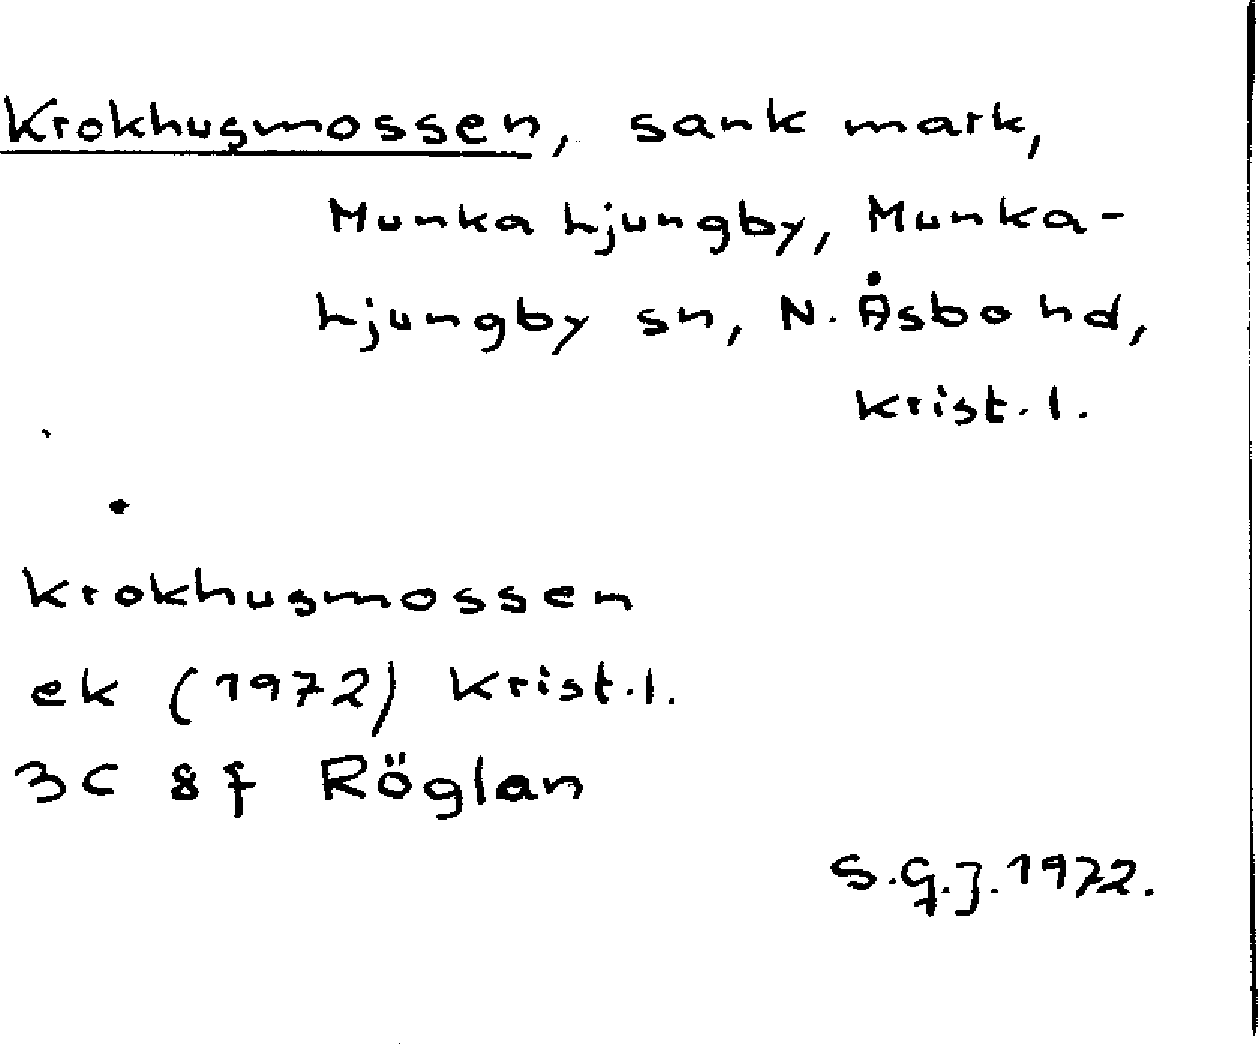 Krokhusmossen, sank mark,
Munka Ljungby, Munka-
Ljungby sn, N. Åsbo hd,
Krist. l.
Krokhusmossen
ek (1972) Krist. l.
3C 8f Röglan
S.G.J. 1972.